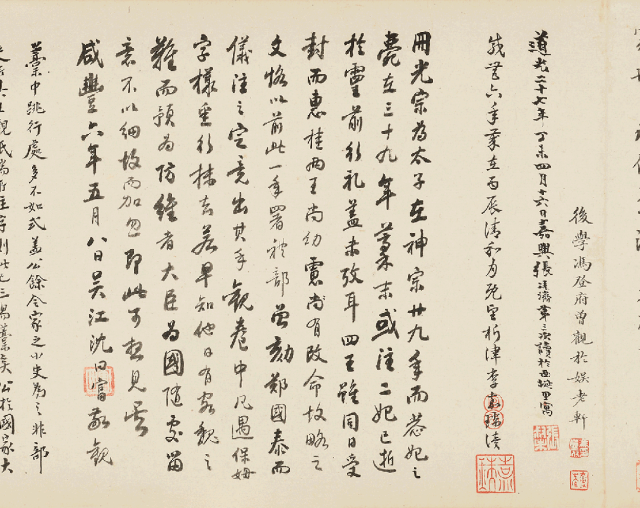 後學馮登府曾觀於娛老軒
道光二十七年丁未四月十六日嘉興張廷濟第三次讀於西埏里寓
咸豐六年歲在丙辰清和月既望析津李嘉瑞讀
冊光宗為太子在神宗廿九年而恭妃之
薨在三十九年藁末或注二妃已逝
於靈前行禮蓋未攷耳四王雖同日受
封而惠桂兩王尚幼慮尚有改命故略之
文恪以前此一年署禮部曾劾鄭國泰而
儀注之定竟出其手觀卷中凡遇保姆
字樣並行抹去若早知他日有客魏之
難而預為防維者大臣為國隨處留
意不以細故而加忽即此可想見矣
咸豐六年五月八日吳江沈曰富敬觀
藁中跳行處多不如式蓋公餘令家之小史為之非部